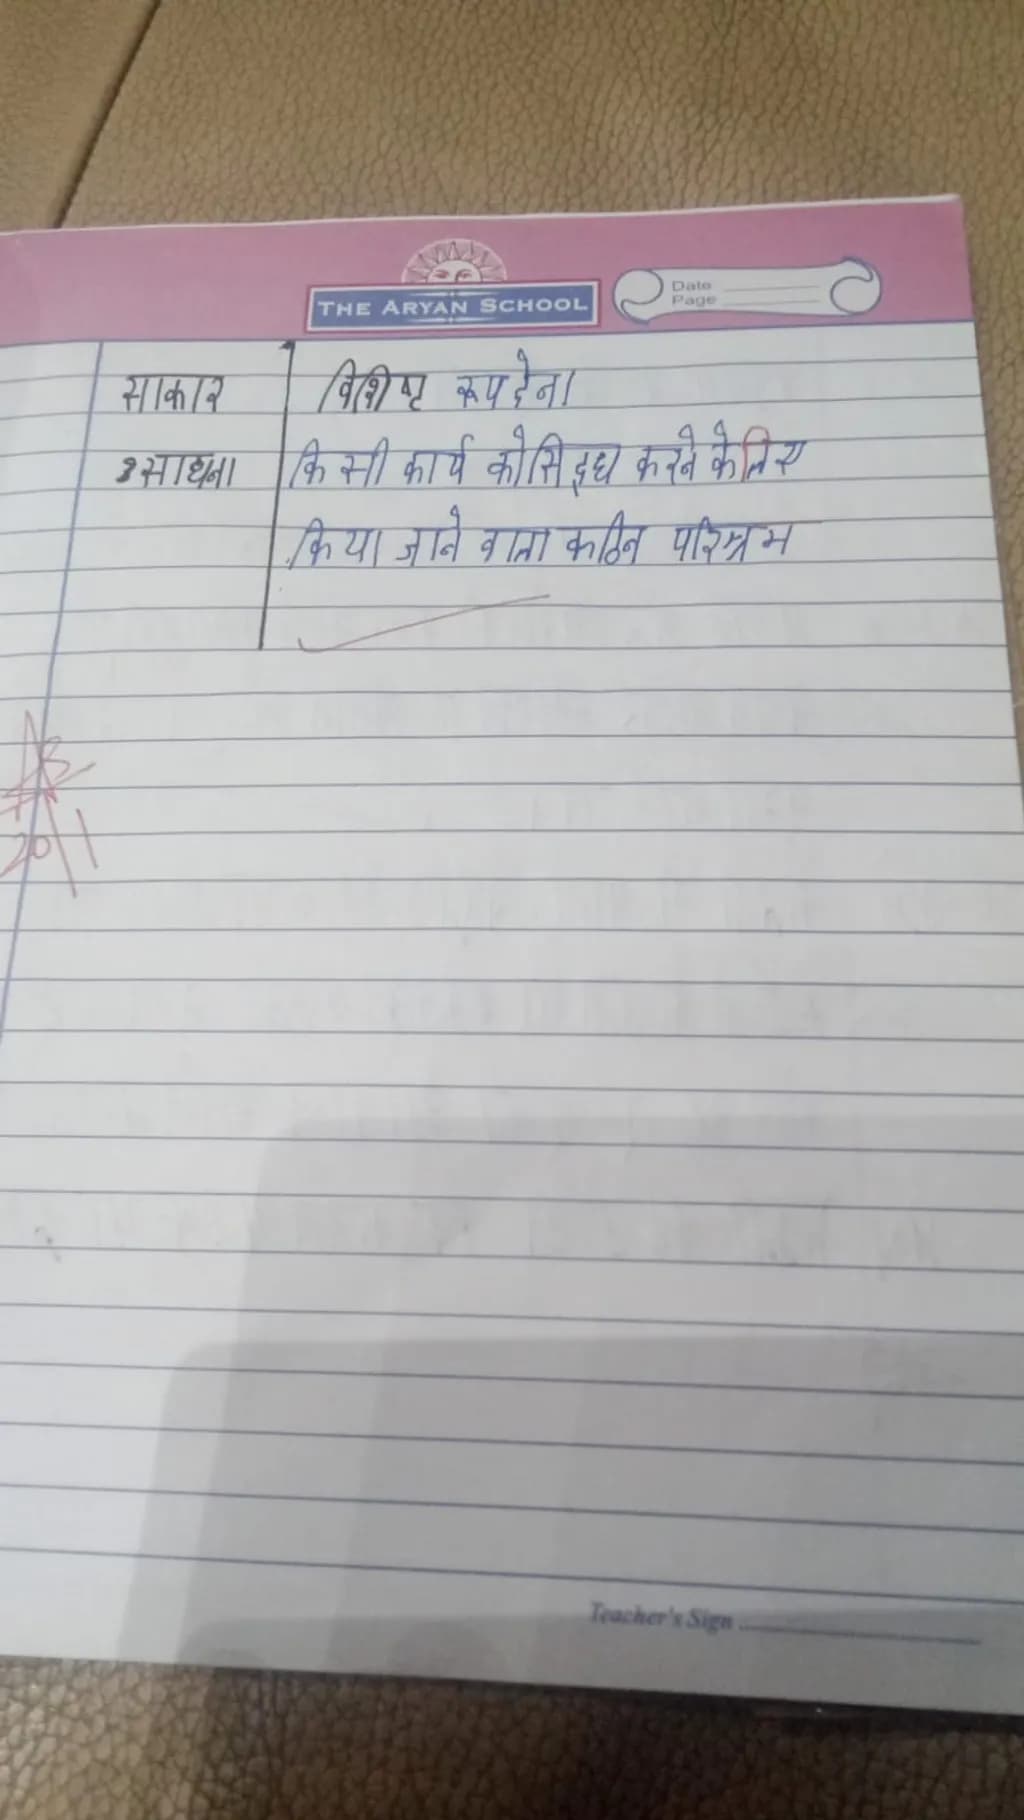 THE ARYAN SCHOOL
Date
Page
साकार विशिष्ट रूप देना।
साधना किसी कार्य को सिद्ध करने के लिए
किया जाने वाला कठिन परिश्रम
20/1
Teacher's Sign